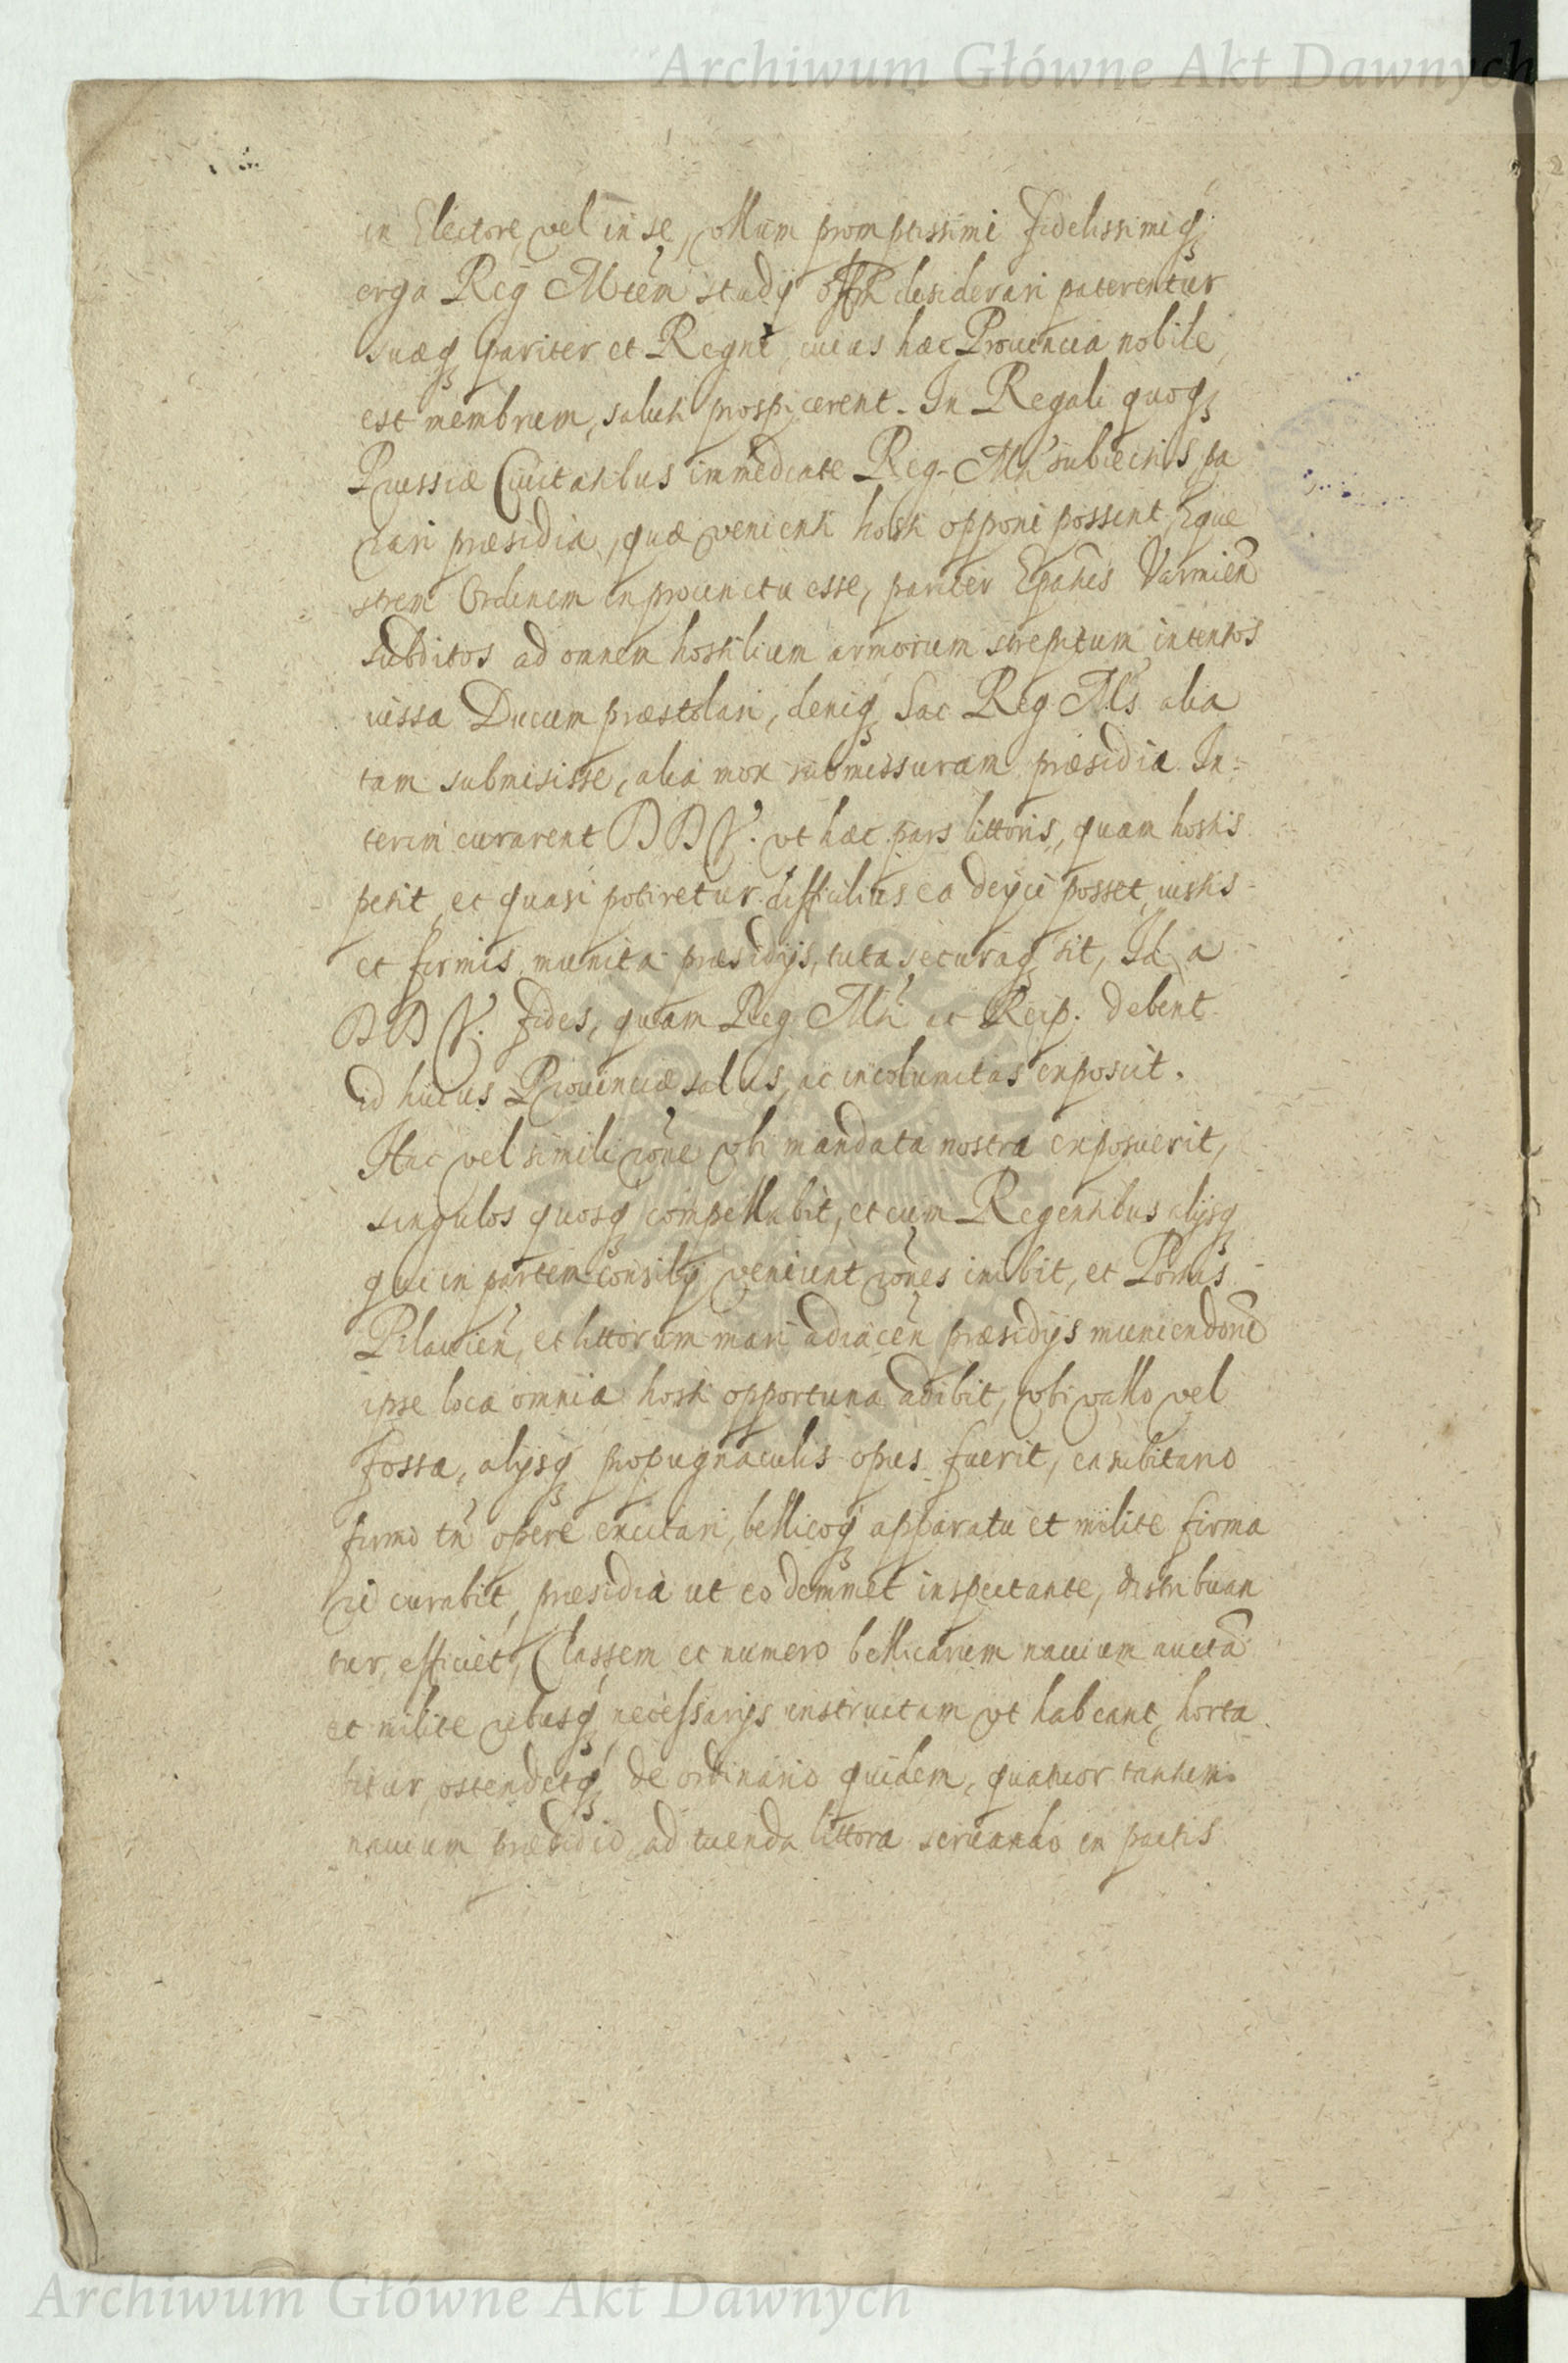 Archiwum Główne Akt Dawnych
in Electore, vel in se, ullum promptissimi fidelissimiq
erga Reg Mtem studij desiderari paterentur
suæq pariter et Regni, cuius hæc Prouincia nobile
est membrum, saluti prospicerent. In Regali quoq
Prussiæ Ciuitatibus immediate Reg. Mti subiectis pa
rari præsidia, quæ venienti hosti opponi possint, Eque
strem Ordinem in procinctu esse, pariter Epatus Varmien
subditos ad omnem hostilium armorum strepitum intentos
iussa Ducum præstolari, deniq Sac Reg Mts alia
iam submisisse, alia mox submissuram præsidia. In-
terim curarent DD V. vt hæc pars littoris, quam hostis
petit, et quasi potiretur difficilius ea deijci posset, iustis
et firmis munita præsidijs, tuta securaq sit, Id a
DD V. fides, quam Reg Mti et Reip. debent
id huius Prouinciæ salus, ac incolumitas exposcit.
Hac vel simili rone vbi mandata nostra exposuerit,
singulos quosq compellabit, et cum Regentibus alijsq
qui in partem consilij veniunt rones inibit, et Portus
Pilauien, et littorum mari adiacen præsidijs muniendorum
ipse loca omnia hosti opportuna adibit, vbi vallo vel
fossa, alijsq propugnaculis opus fuerit, ea subitario
firmo tn opere excitari, bellicoq apparatu et milite firma
ri curabit, præsidia ut eodemmet inspectante, distribuan
tur, efficiet, Classem et numero bellicarum nauium auctã
et milite rebusq necessarijs instructam vt habeant, horta
bitur, ostendetq de ordinario quidem, quatuor tantum
nauium præsidio, ad tuenda littora seruando in pactis
Archiwum Główne Akt Dawnych